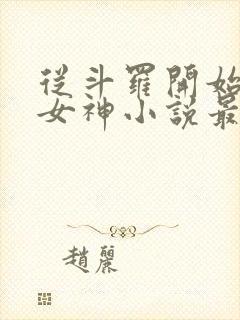 從斗羅開始
女神小說最
趙麗